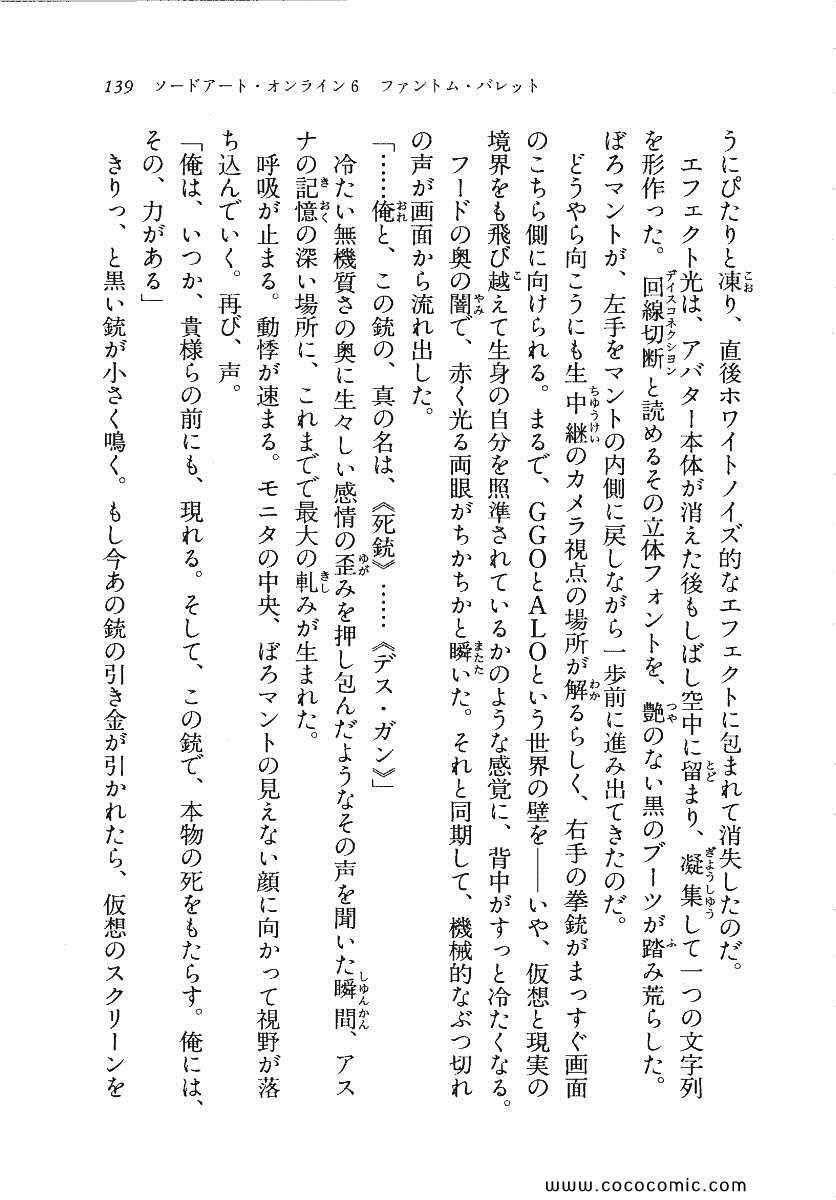 139 ソードアート・オンライン6 ファントム・バレット
うにぴたりと凍り、直後ホワイトノイズ的なエフェクトに包まれて消失したのだ。
エフェクト光は、アバター本体が消えた後もしばし空中に留まり、凝集して一つの文字列
を形作った。回線切断と読めるその立体フォントを、艶のない黒のブーツが踏み荒らした。
ぼろマントが、左手をマントの内側に戻しながら一歩前に進み出てきたのだ。
どうやら向こうにも生中継のカメラ視点の場所が解るらしく、右手の拳銃がまっすぐ画面
のこちら側に向けられる。まるで、GGOとALOという世界の壁を――いや、仮想と現実の
境界をも飛び越えて生身の自分を照準されているかのような感覚に、背中がすっと冷たくなる。
フードの奥の闇で、赤く光る両眼がちかちかと瞬いた。それと同期して、機械的なぶつ切れ
の声が画面から流れ出した。
「……俺と、この銃の、真の名は、《死銃》……《デス・ガン》」
冷たい無機質さの奥に生々しい感情の歪みを押し包んだようなその声を聞いた瞬間、アス
ナの記憶の深い場所に、これまでで最大の軋みが生まれた。
呼吸が止まる。動悸が速まる。モニタの中央、ぼろマントの見えない顔に向かって視野が落
ち込んでいく。再び、声。
「俺は、いつか、貴様らの前にも、現れる。そして、この銃で、本物の死をもたらす。俺には、
その、力がある」
きりっ、と黒い銃が小さく鳴く。もし今あの銃の引き金が引かれたら、仮想のスクリーンを
www.cococomic.com